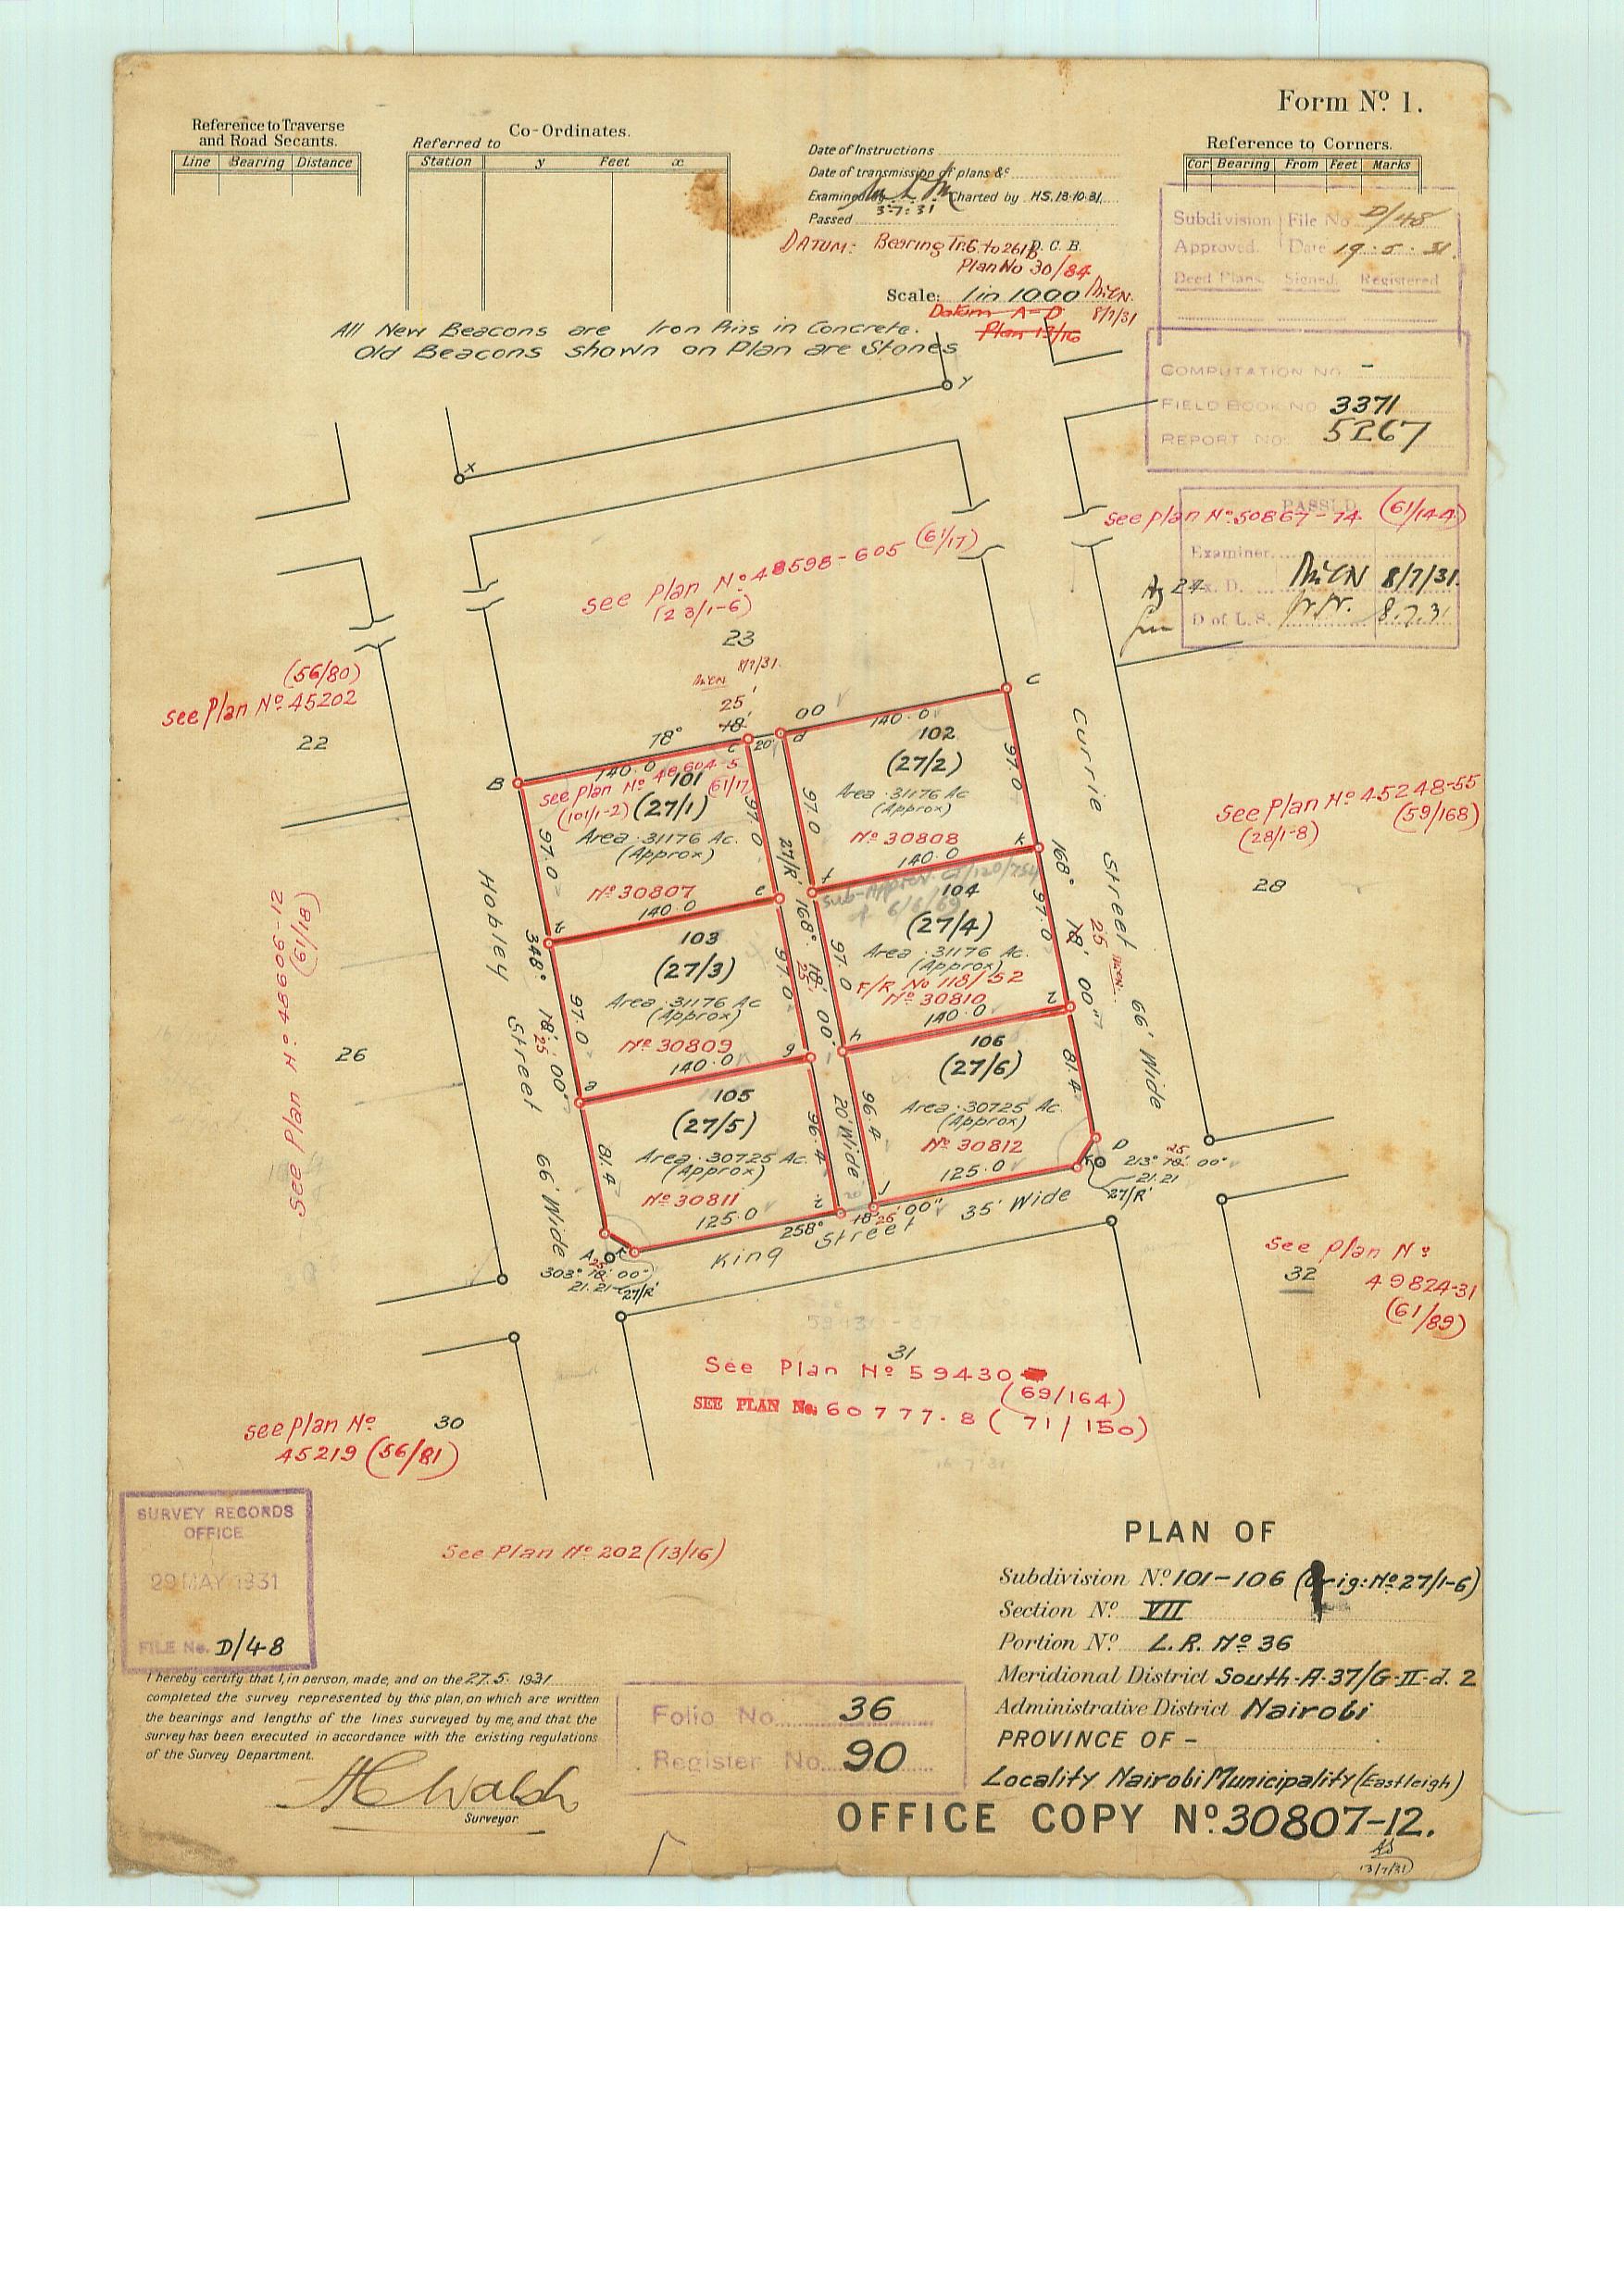 Form Nº 1.
Reference to Traverse
and Road Secants.
Line Bearing Distance
Co-Ordinates.
Referred to
Station y Feet x
Date of Instructions
Date of transmission of plans &c
Examined by Charted by H.S. 13.10.31.
3.7.31
Passed
DATUM: Bearing Tr.6. to 261B D.C.B.
Plan No 30/84
Scale: 1 in 1000
8/7/31
Datum A-D
Plan 13/16
Reference to Corners.
Cor Bearing From Feet Marks
Subdivision File No D/48
Approved. Date 19.5.31.
Deed Plans. Signed. Registered
COMPUTATION NO. -
FIELD BOOK NO. 3371
REPORT NO. 5267
PASSED
Examiner
Ex. D. 8/7/31.
D of L.S. 8.7.31
All New Beacons are Iron Pins in Concrete.
Old Beacons shown on Plan are Stones
Y
X
See plan Nº 50867-74 (61/144)
See Plan Nº 48598-605 (61/17)
(23/1-6)
23
8/7/31.
(56/80)
See Plan Nº 45202
22
25'
78° 18' 00
B
140.0
c
20'
d
140.0
C
See plan Nº 48604-5
(61/17)
(101/1-2)
101
(27/1)
Area .31176 Ac.
(Approx)
Nº 30807
97.0
97.0
140.0
102
(27/2)
Area .31176 Ac
(Approx)
Nº 30808
97.0
97.0
140.0
27/R
e
f
k
103
(27/3)
Area .31176 Ac
(Approx)
Nº 30809
97.0
97.0
140.0
Sub-Approv. 6/6/69
104
(27/4)
Area .31176 Ac
(Approx)
F/R No 118/52
Nº 30810
97.0
97.0
140.0
168° 18' 00"
25
g
h
105
(27/5)
Area .30725 Ac.
(Approx)
Nº 30811
81.4
96.4
125.0
106
(27/6)
Area .30725 Ac.
(Approx)
Nº 30812
96.4
81.4
125.0
20' Wide
i
j
a
b
348° 18' 00"
25
Hobley Street 66' Wide
Currie Street 66' Wide
168° 18' 00"
25
D
213° 18' 00"
25
21.21
27/R
A
303° 18' 00"
25
21.21
27/R
258° 18' 00"
25
King Street 35' Wide
See Plan Nº 45248-55
(28/1-8) (59/168)
28
See Plan Nº 48606-12
(61/18)
26
See Plan Nº
32
49824-31
(61/89)
31
See Plan Nº 59430
(69/164)
SEE PLAN No. 60777-8 (71/150)
See Plan Nº
30
45219 (56/81)
See Plan Nº 202 (13/16)
SURVEY RECORDS
OFFICE
29 MAY 1931
FILE No. D/48
I hereby certify that I, in person, made, and on the 27.5.1931
completed the survey represented by this plan, on which are written
the bearings and lengths of the lines surveyed by me, and that the
survey has been executed in accordance with the existing regulations
of the Survey Department.
Surveyor
Folio No. 36
Register No. 90
PLAN OF
Subdivision Nº 101-106 (Orig: Nº 27/1-6)
Section Nº VII
Portion Nº L.R. Nº 36
Meridional District South-A-37/G-II-d. 2
Administrative District Nairobi
PROVINCE OF -
Locality Nairobi Municipality (Eastleigh)
OFFICE COPY Nº 30807-12.
13/7/31